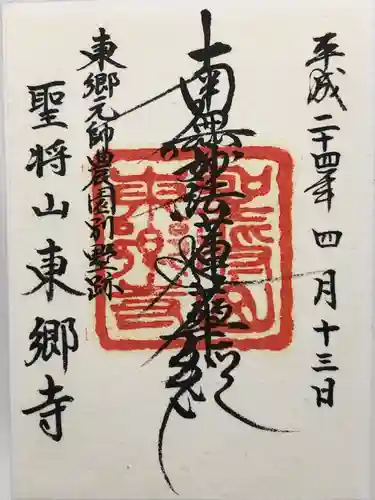 平成二十四年四月十三日
南無妙法蓮華経
東郷元帥農園別野跡
聖将山東郷寺